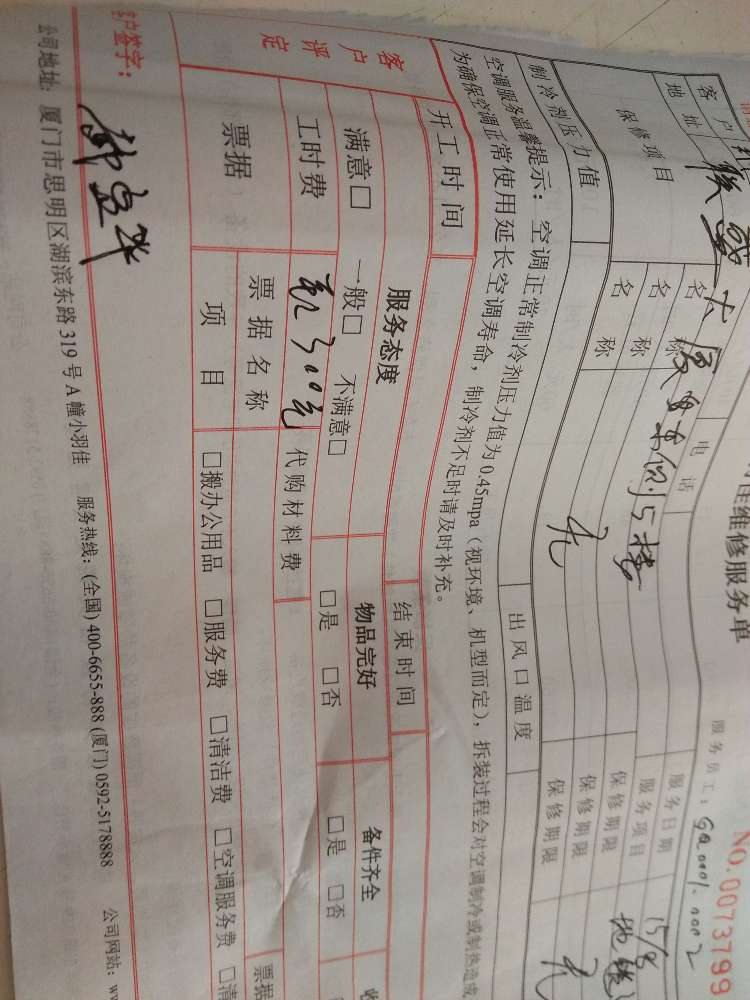 佳维修服务单
NO.0073799
服务员工：GQ0001.0002
客户 电话 服务日期 15/8
地址 大厦 东侧15楼 服务项目 地毯
保修项目 名称 保修期限
名称 保修期限
名称 保修期限
制冷剂压力值 出风口温度
空调服务温馨提示：空调正常制冷剂压力值为0.45mpa（视环境、机型而定），拆装过程会对空调制冷或制热造成
为确保空调正常使用延长空调寿命，制冷剂不足时请及时补充。
开工时间 结束时间
客户评定 服务态度 物品完好 备件齐全
满意□ 一般□ 不满意□ □是 □否 □是 □否
工时费 300元 代购材料费
票据 票据名称 票据
项目 □搬办公用品 □服务费 □清洁费 □空调服务费 □清
客户签字：
公司地址：厦门市思明区湖滨东路319号A幢小羽佳 服务热线：(全国) 400-6655-888 (厦门) 0592-5178888 公司网站：